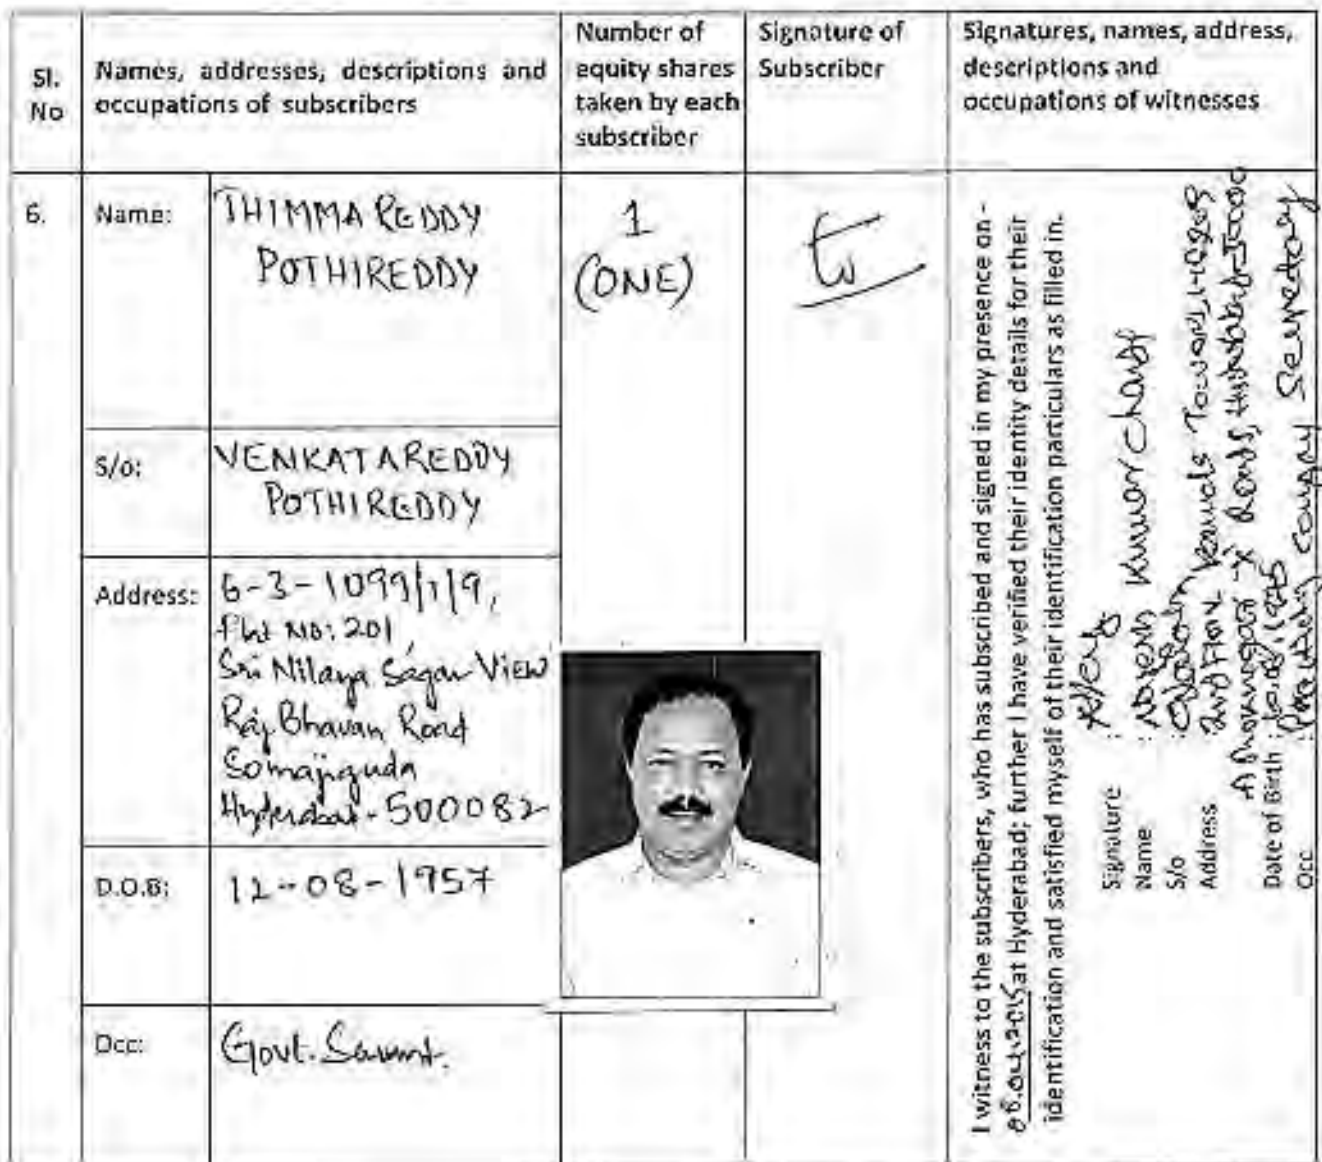 Sl.
No
Names, addresses, descriptions and
occupations of subscribers
Number of
equity shares
taken by each
subscriber
Signature of
Subscriber
Signatures, names, address,
descriptions and
occupations of witnesses
6.
Name:
THIMMA REDDY
POTHIREDDY
1
(ONE)
S/o:
VENKATAREDDY
POTHIREDDY
Address:
6-3-1099/1/9,
Flat NO: 201
Sri Nilaya Sagar View
Raj Bhavan Road
Somajiguda
Hyderabad - 500082
D.O.B:
12-08-1957
Occ:
Govt. Servant.
I witness to the subscribers, who has subscribed and signed in my presence on -
at Hyderabad; further I have verified their identity details for their
identification and satisfied myself of their identification particulars as filled in.
Signature :
Name : Kumar
S/o :
Address :
X Roads,
Date of Birth :
Occ : Company Secretary